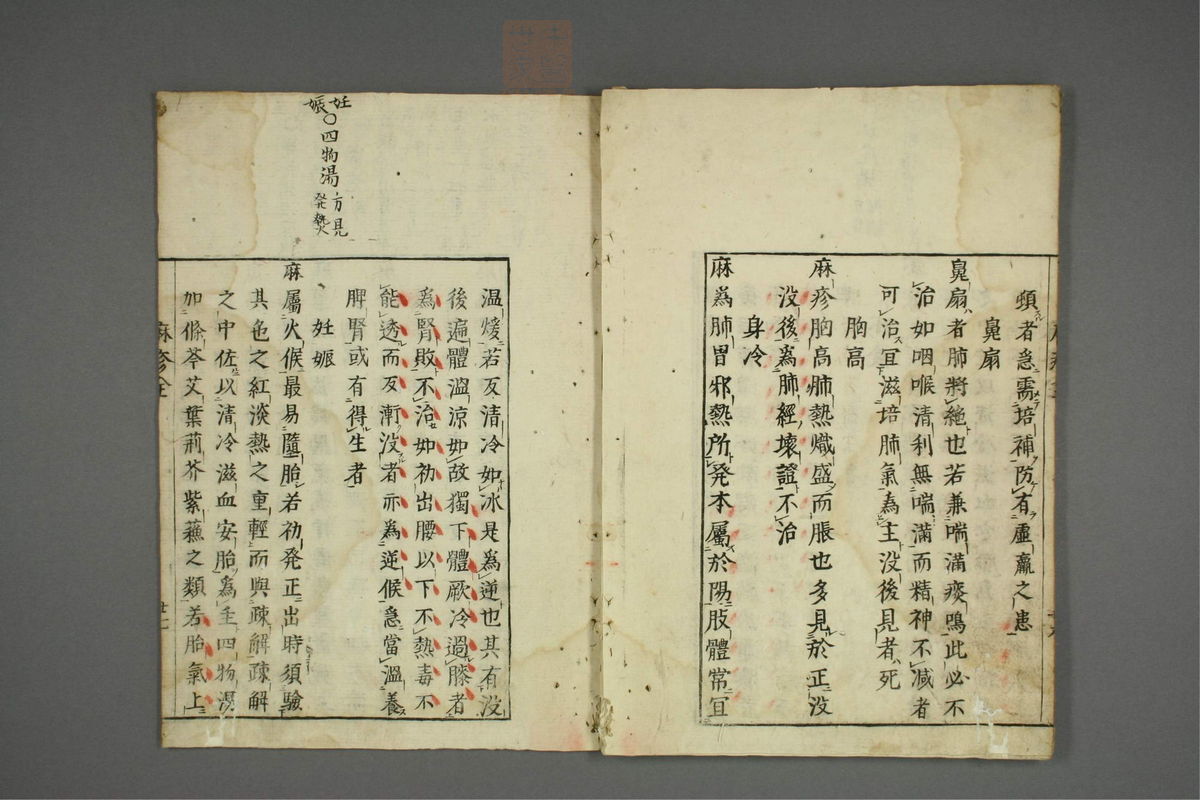 頻者急需培補防有虛羸之患
鼻扇
鼻扇者肺將絶也若兼喘滿痰鳴此必不
治如咽喉清利無喘滿而精神不减者
可治冝滋培肺氣為主没後見者死
胸高
麻疹胸高肺熱熾盛而脹也多見於正没
没後爲肺經壞證不治
身冷
麻爲肺冒邪熱所発本屬於陽肢體常冝
温煖若反清冷如冰是爲逆也其有没
後遍體溫涼如故獨下體厥冷過膝者
爲腎敗不治如初出腰以下不熱毒不
能透而反漸没者亦爲逆候急當溫養
脾腎或有得生者
妊娠
麻屬火候最易墮胎若初発正出時須驗
其色之紅淡熱之重輕而與疎解疎解
之中佐以清冷滋血安胎爲主四物湯
如條芩艾葉荊芥紫蘓之類若胎氣上
麻疹全
妊娠
〇四物湯方見
発熱